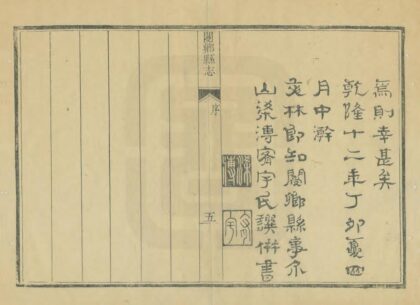 焉則幸甚矣
乾隆十二年丁卯夏四
月中澣
文林郎知閿鄉縣事介
山梁溥密宇民譔併書
梁溥
閿鄉縣志
序
五